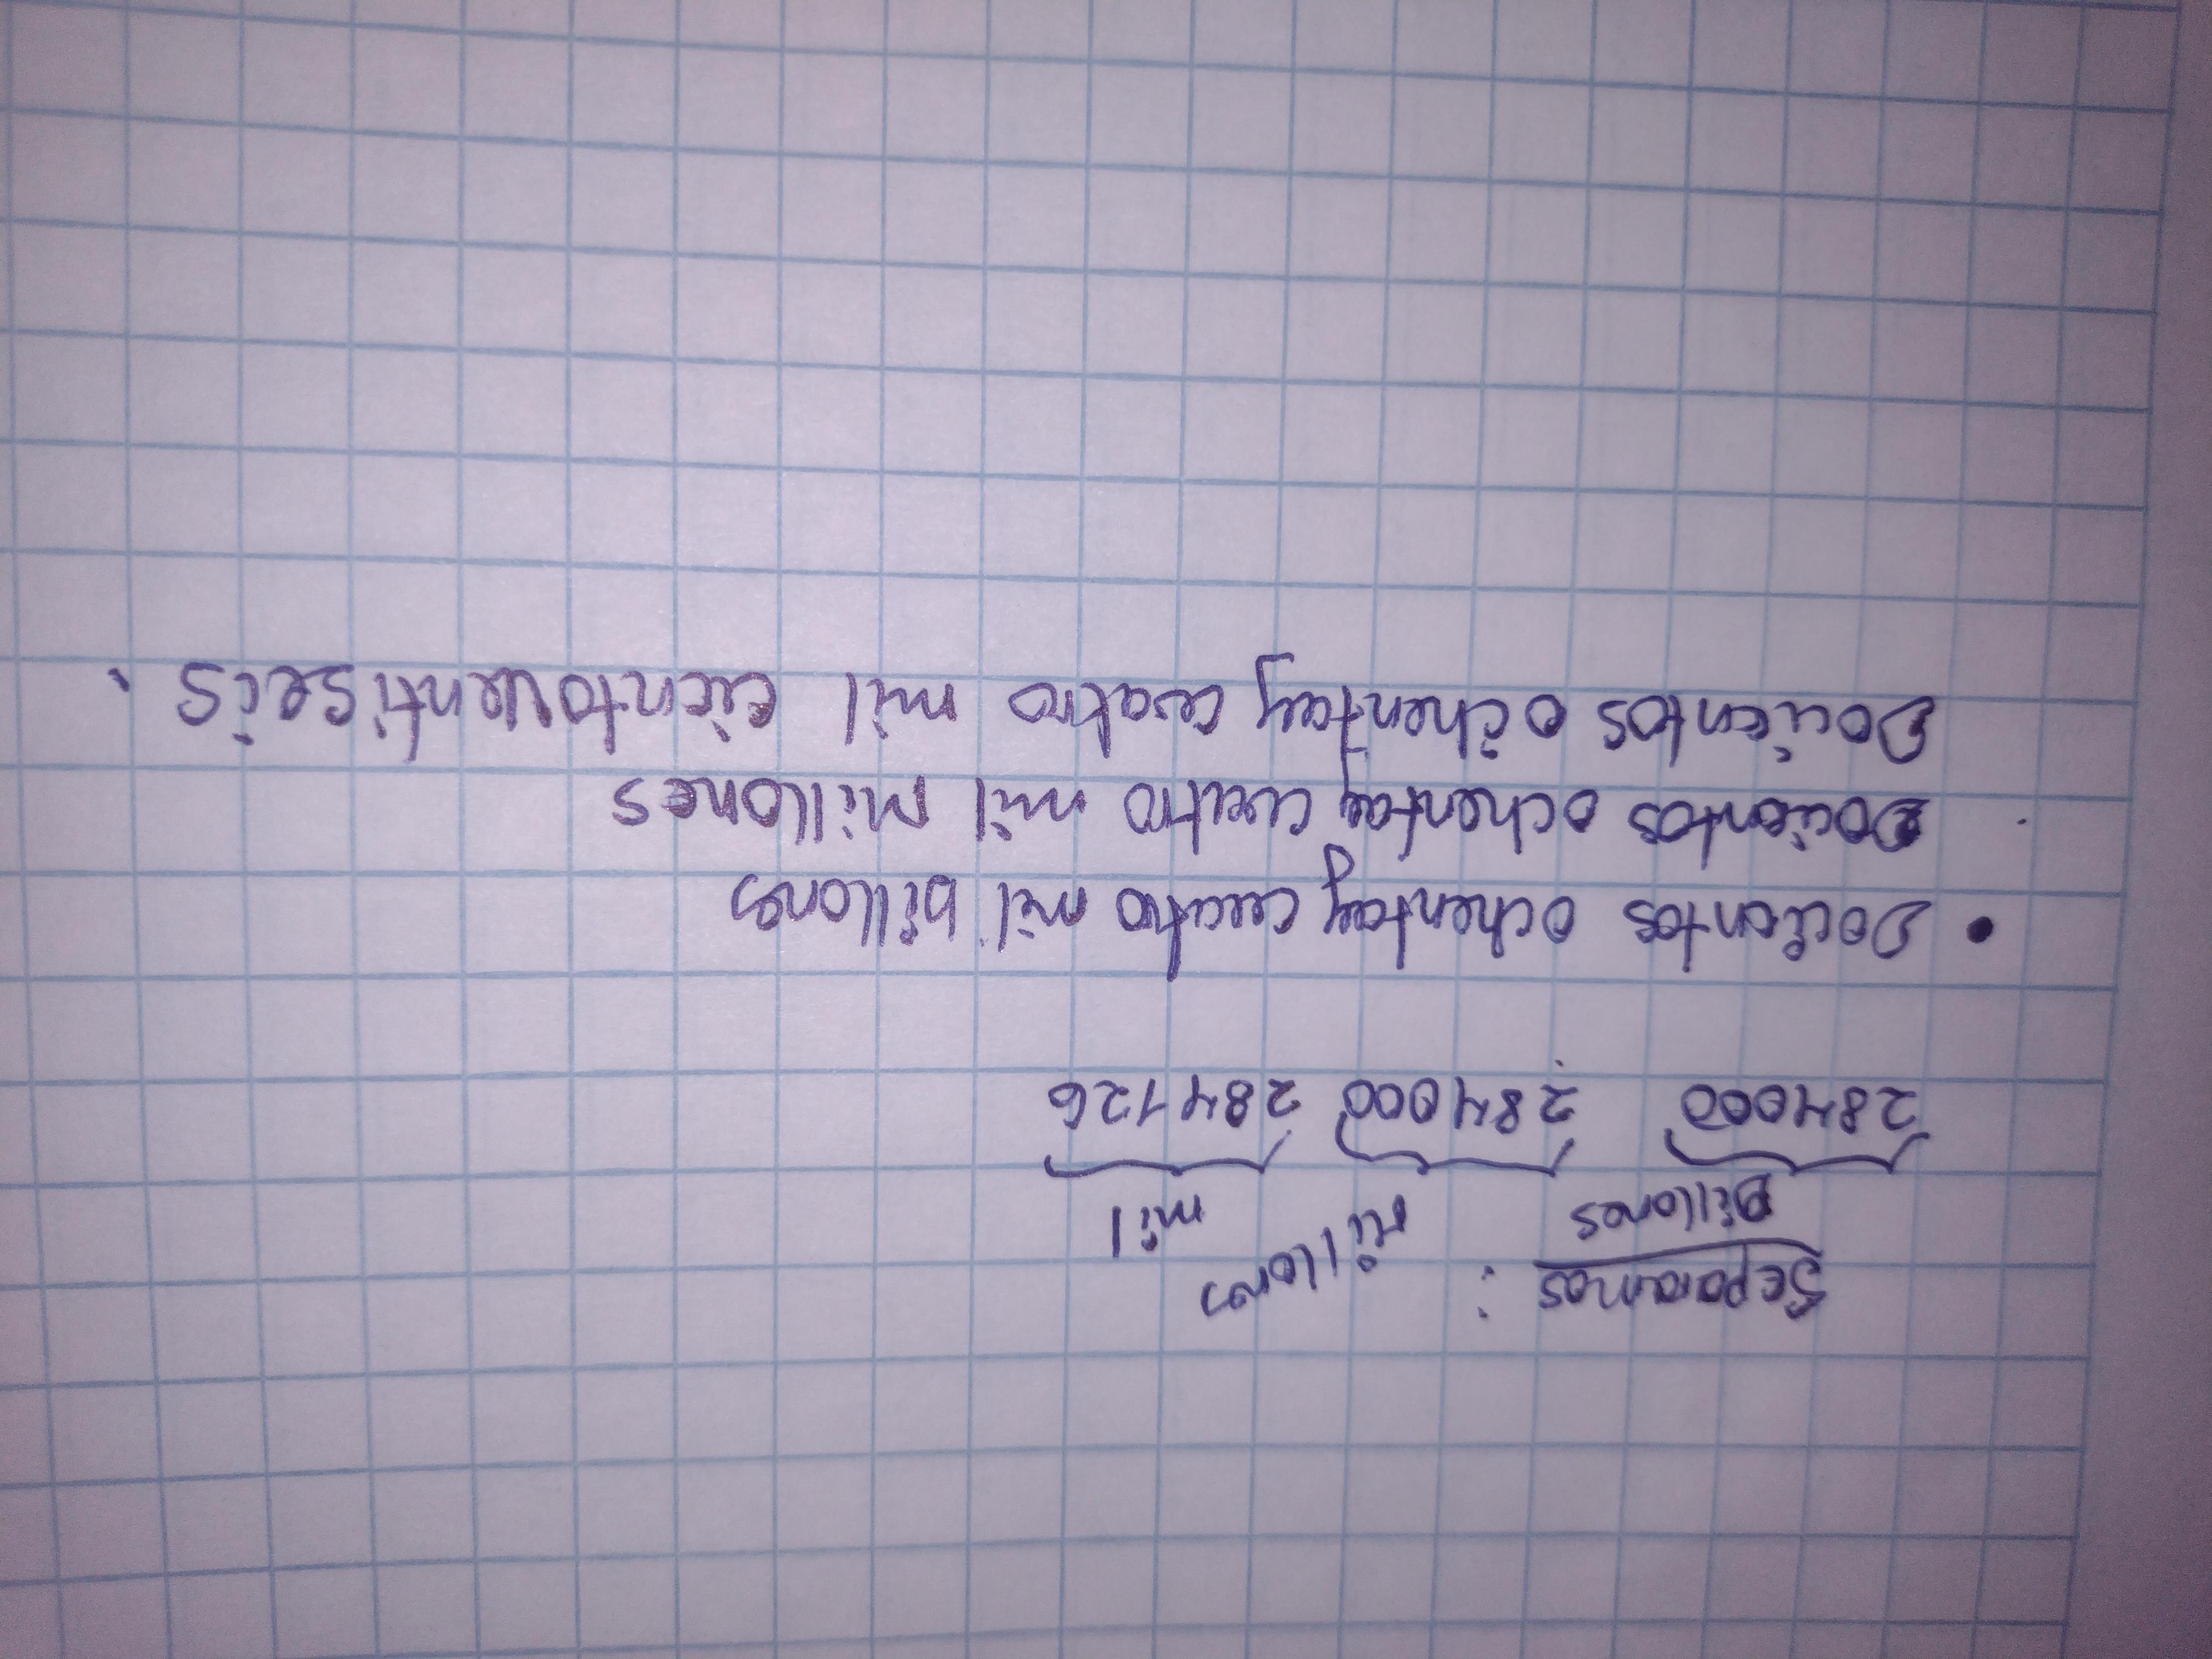 Separamos :
Billones Millones mil
284000 284000 284126
• Docientos ochentay cuatro mil billones
Docientos ochentay cuatro mil Millones
Docientos ochentay cuatro mil cientoventiseis.